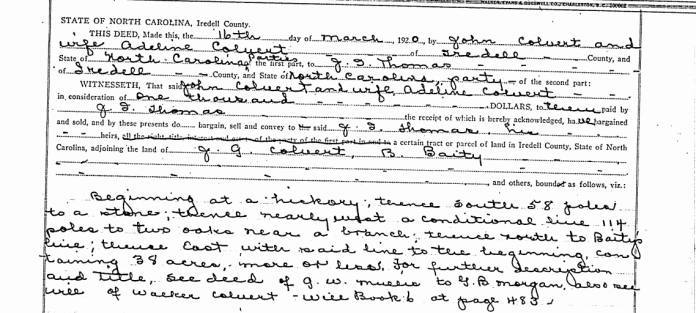 STATE OF NORTH CAROLINA, Iredell County.
THIS DEED, Made this, the 16th day of March, 1920, by John Colvert and
wife Adeline Colvert of Iredell County, and
State of North Carolina, parties of the first part, to J. S. Thomas
of Iredell County, and State of North Carolina, party of the second part:
WITNESSETH, That said John Colvert and wife, Adeline Colvert
in consideration of One thousand DOLLARS, to them paid by
J. S. Thomas the receipt of which is hereby acknowledged, have bargained
and sold, and by these presents do bargain, sell and convey to the said J. S. Thomas, his
heirs, all the right, title, interest and estate of the party of the first part in and to a certain tract or parcel of land in Iredell County, State of North
Carolina, adjoining the land of J. G. Colvert, B. Baity
and others, bounded as follows, viz.:
Beginning at a hickory; thence South 58 poles
to a stone; thence nearly west a conditional line 114
poles to two oaks near a branch; thence north to Baity's
line; thence East with said line to the beginning, con
taining 38 acres, more or less. For further description
and title, see deed of G. W. to G. B. Morgan, also see
will of Walker Colvert - Will Book 6 at page 483.